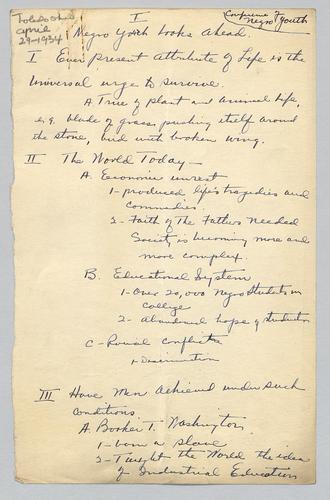 Toledo Ohio
April
29-1934
I
Conference of
Negro Youth
Negro Youth Looks Ahead.
I Ever Present Attribute of Life is the
Universal urge to survive.
A. True of plant and animal life,
e.g. blade of grass pushing itself around
the stone, bird with broken wing.
II The World Today—
A. Economic unrest
1- produced life's tragedies and
comedies.
2- Faith of the Fathers Needed
Society is becoming more and
more complex.
B. Educational System
1- Over 20,000 Negro Students in
College
2- Abandoned hope of
C- Racial conflicts
+ Discrimination
III Have Men Achieved under such
Conditions
A. Booker T. Washington
1- born a slave
2- Taught the World the idea
of Industrial Education